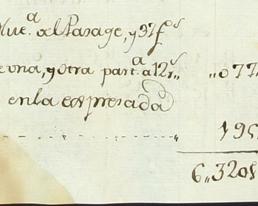 Nue.ª al Parage, y 97 f.s
una, y otra part.ª a 12 r.s „077
en la expresada
195
6„320